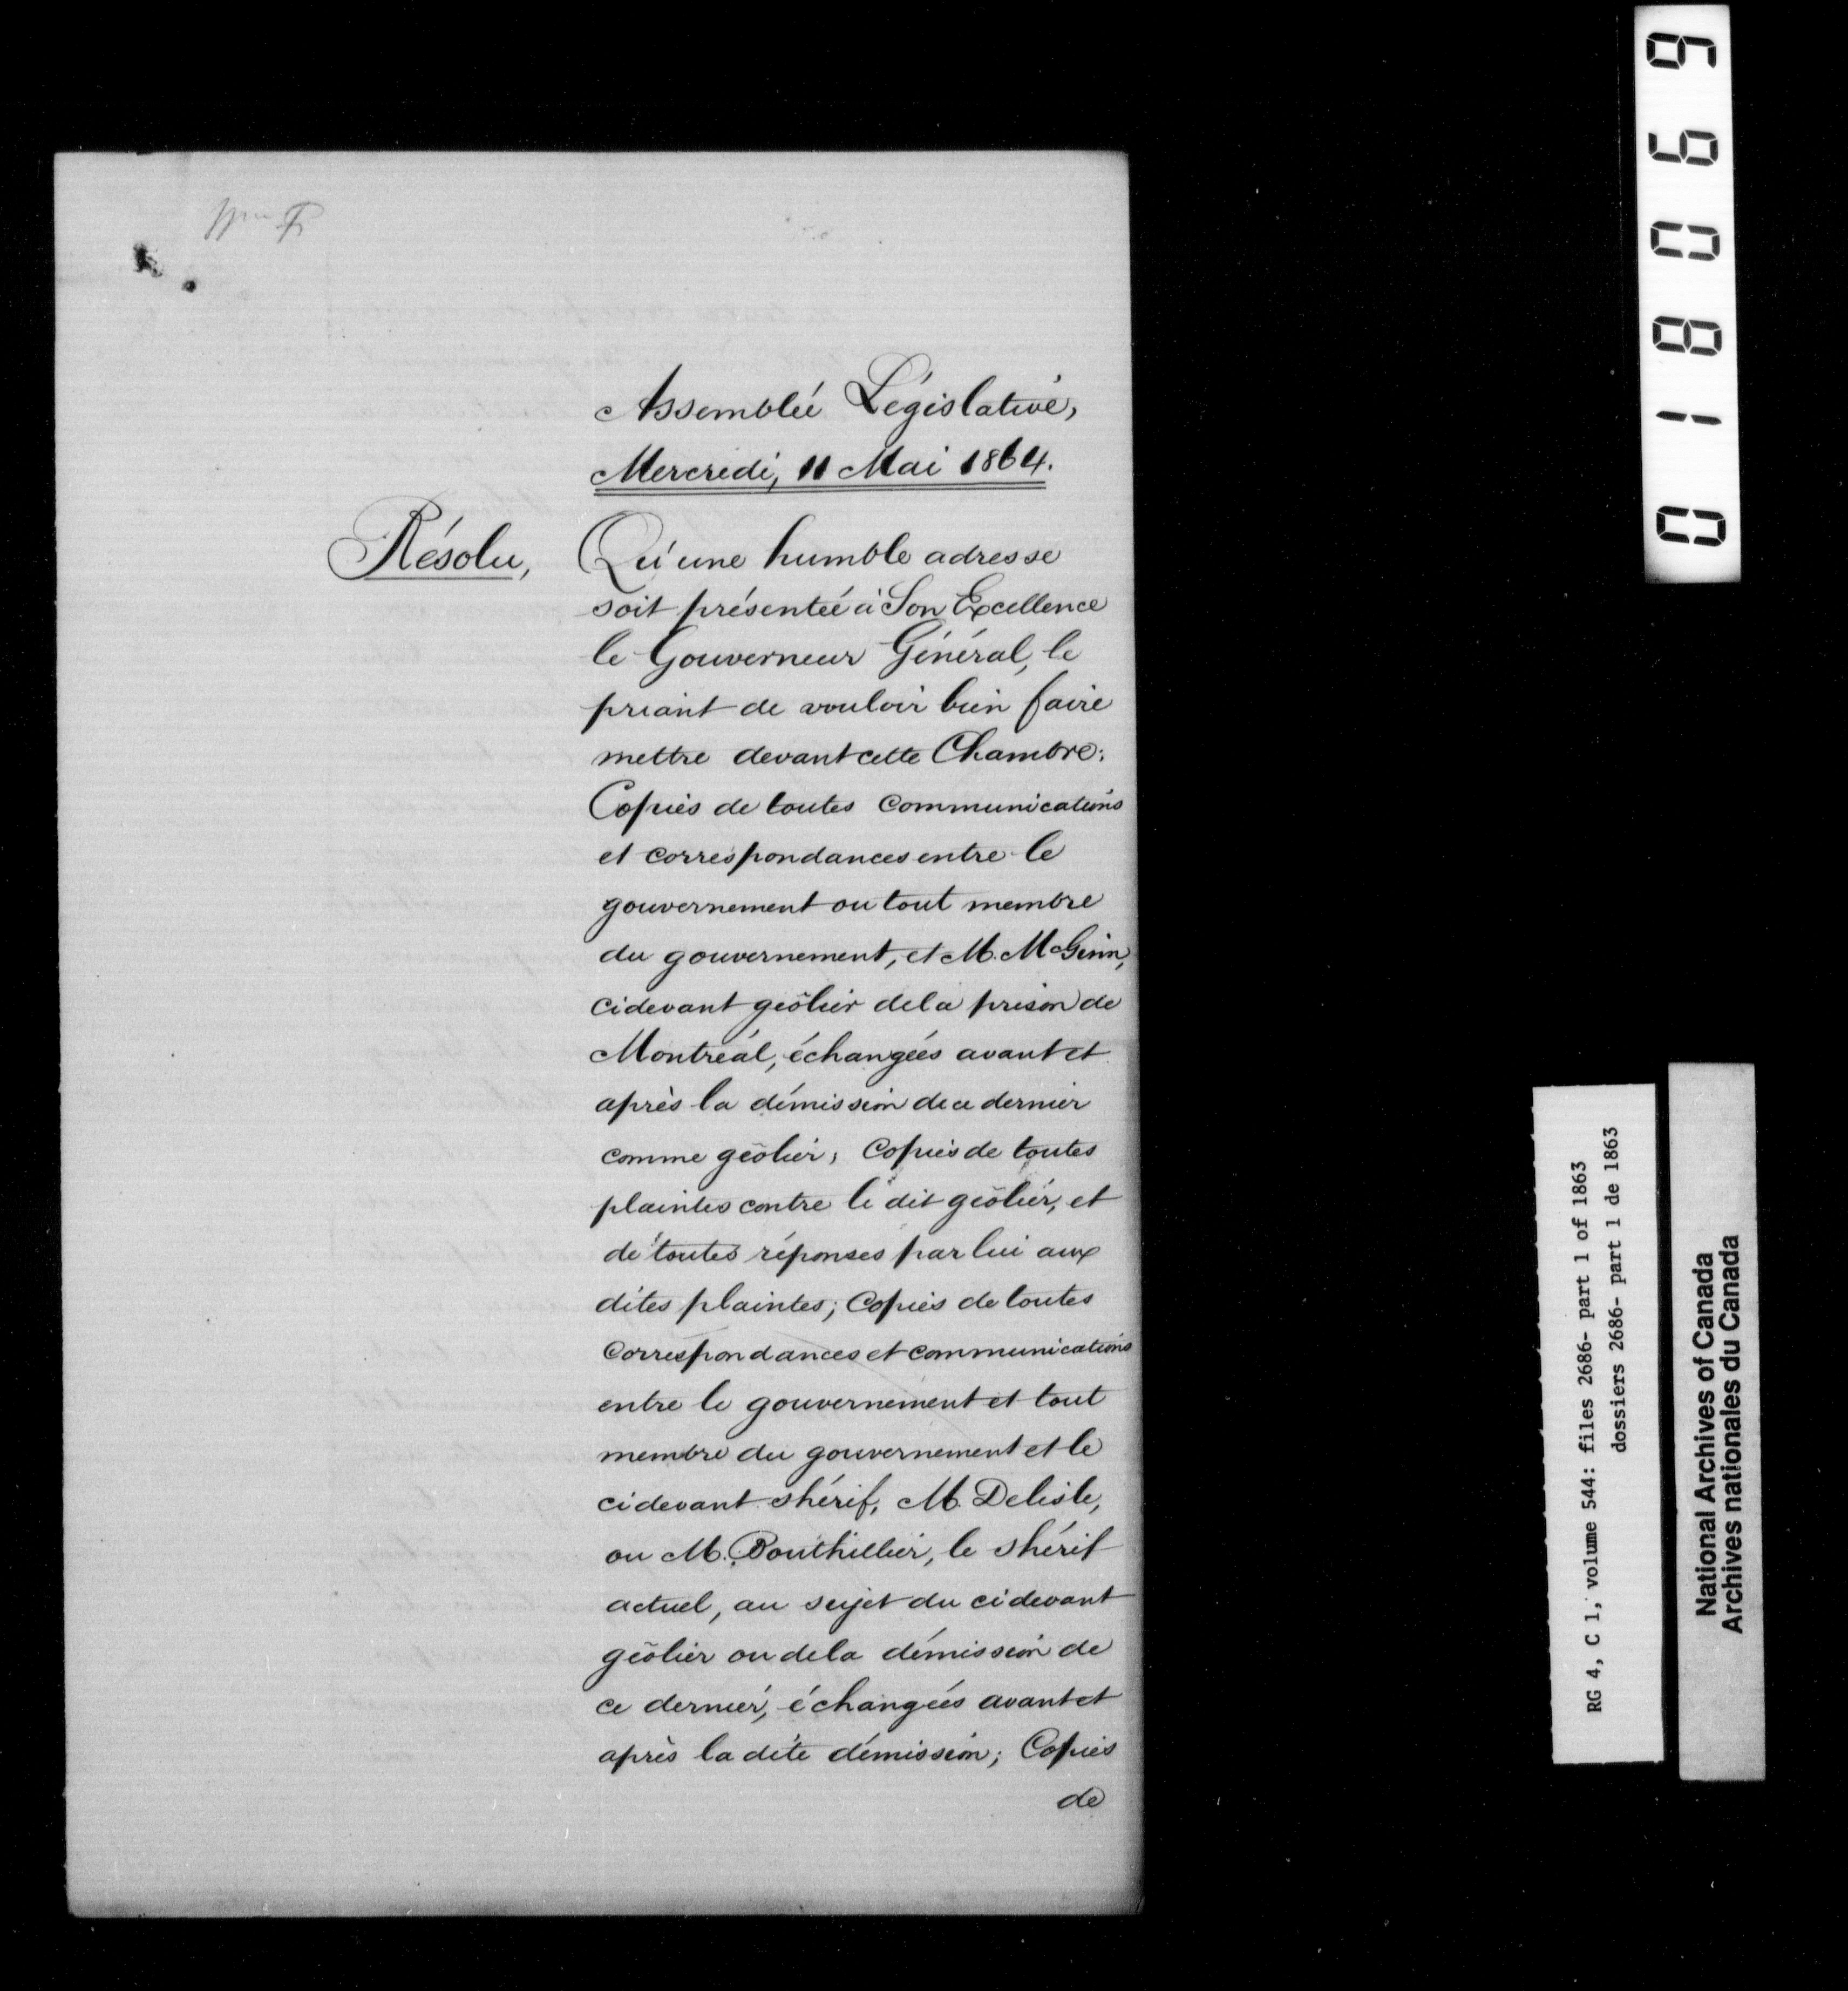 Assemblée Législative,
Mercredi, 11 Mai 1864.
Résolu, Qu'une humble adresse
soit présentée à Son Excellence
le Gouverneur Général, le
priant de vouloir bien faire
mettre devant cette Chambre:
Copies de toutes communications
et correspondances entre le
gouvernement ou tout membre
du gouvernement, et M. McGinn,
cidevant geôlier de la prison de
Montréal, échangées avant et
après la démission de ce dernier
comme geôlier; Copies de toutes
plaintes contre le dit geôlier, et
de toutes réponses par lui aux
dites plaintes; Copies de toutes
Correspondances et communications
entre le gouvernement et tout
membre du gouvernement et le
cidevant shérif, M. Delisle,
ou M. Bouthillier, le shérif
actuel, au sujet du cidevant
geôlier ou de la démission de
ce dernier, échangées avant et
après la dite démission; Copies
de
018069
RG 4, C 1, volume 544: files 2686- part 1 of 1863
dossiers 2686- part 1 de 1863
National Archives of Canada
Archives nationales du Canada